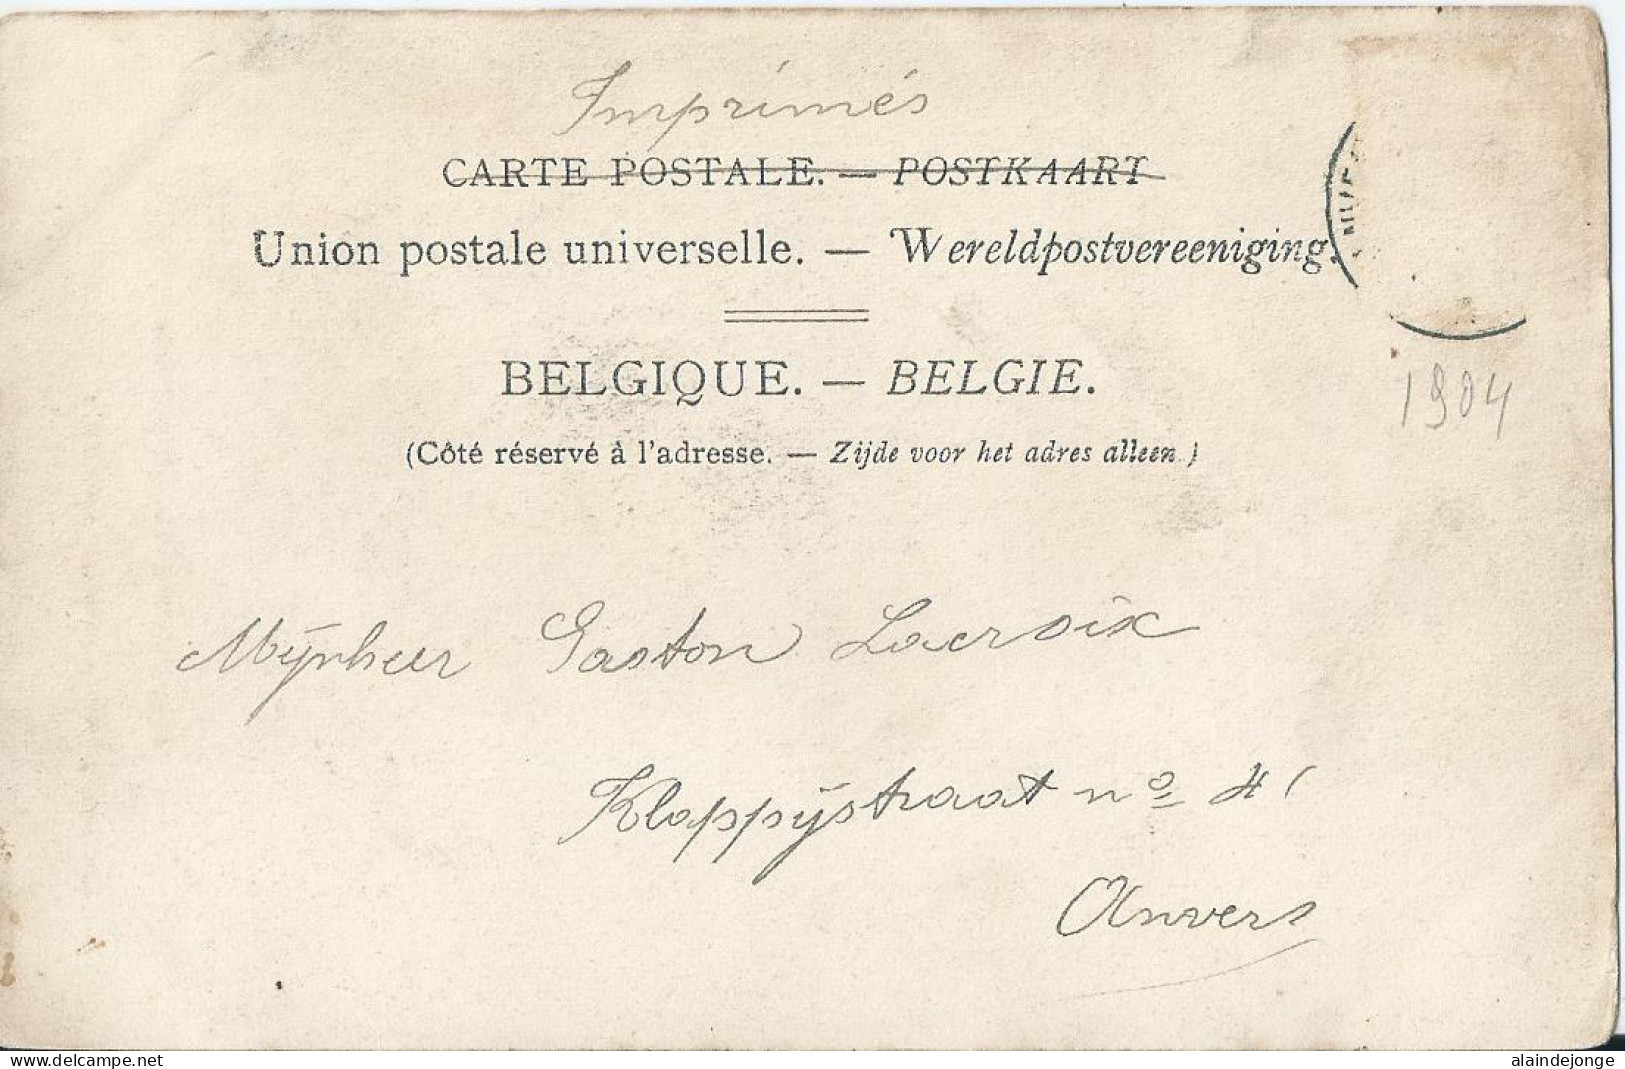 Imprimés
CARTE POSTALE. — POSTKAART
Union postale universelle. — Wereldpostvereeniging.
BELGIQUE. — BELGIE.
1904
(Côté réservé à l'adresse. — Zijde voor het adres alleen.)
Mijnheer Gaston Lacroix
Klappijstraat nº 41
Anvers
delcampe.net
alaindejonge